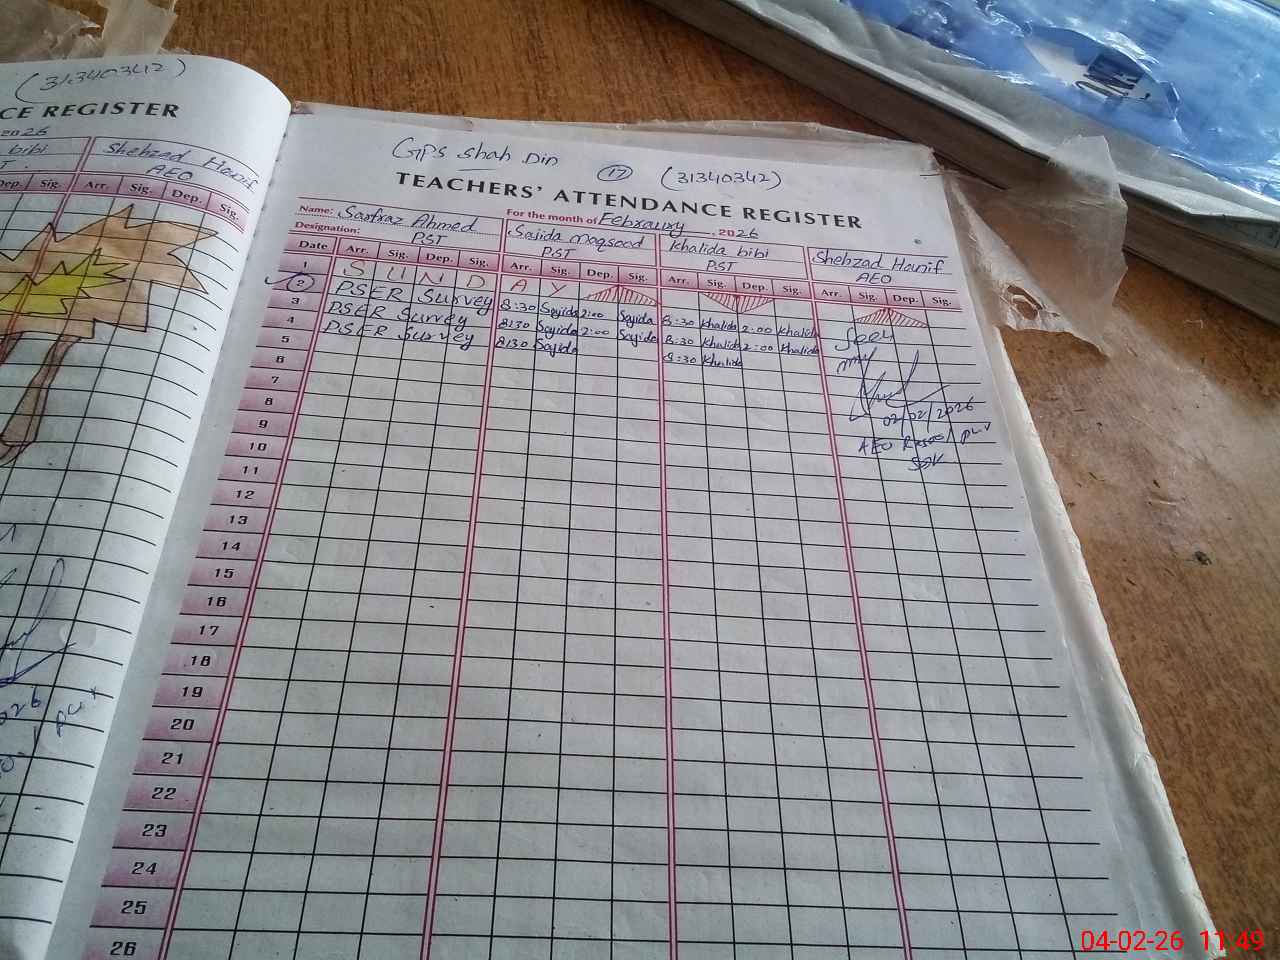 (31340342)
CE REGISTER
2026
bibi
Shehzad Hanif
AEO
Dep. Sig. Arr. Sig. Dep. Sig.
GPS Shah Din 17 (31340342)
TEACHERS' ATTENDANCE REGISTER
Name: Sarfraz Ahmed For the month of Febraury 2026
Designation: PST
Sajida maqsood PST
Khalida bibi PST
Shehzad Hanif AEO
Date Arr. Sig. Dep. Sig. Arr. Sig. Dep. Sig. Arr. Sig. Dep. Sig. Arr. Sig. Dep. Sig.
1 S U N D A Y
2 PSER Survey 8:30 Sajida 2:00 Sajida 8:30 Khalida 2:00 Khalida
3 PSER Survey 8:30 Sajida 2:00 Sajida 8:30 Khalida 2:00 Khalida
4 PSER Survey 8:30 Sajida 8:30 Khalida
5
6
7
8
9
10
11
12
13
14
15
16
17
18
19
20
21
22
23
24
25
26
Seen
02/02/2026
AEO
04-02-26 11:49